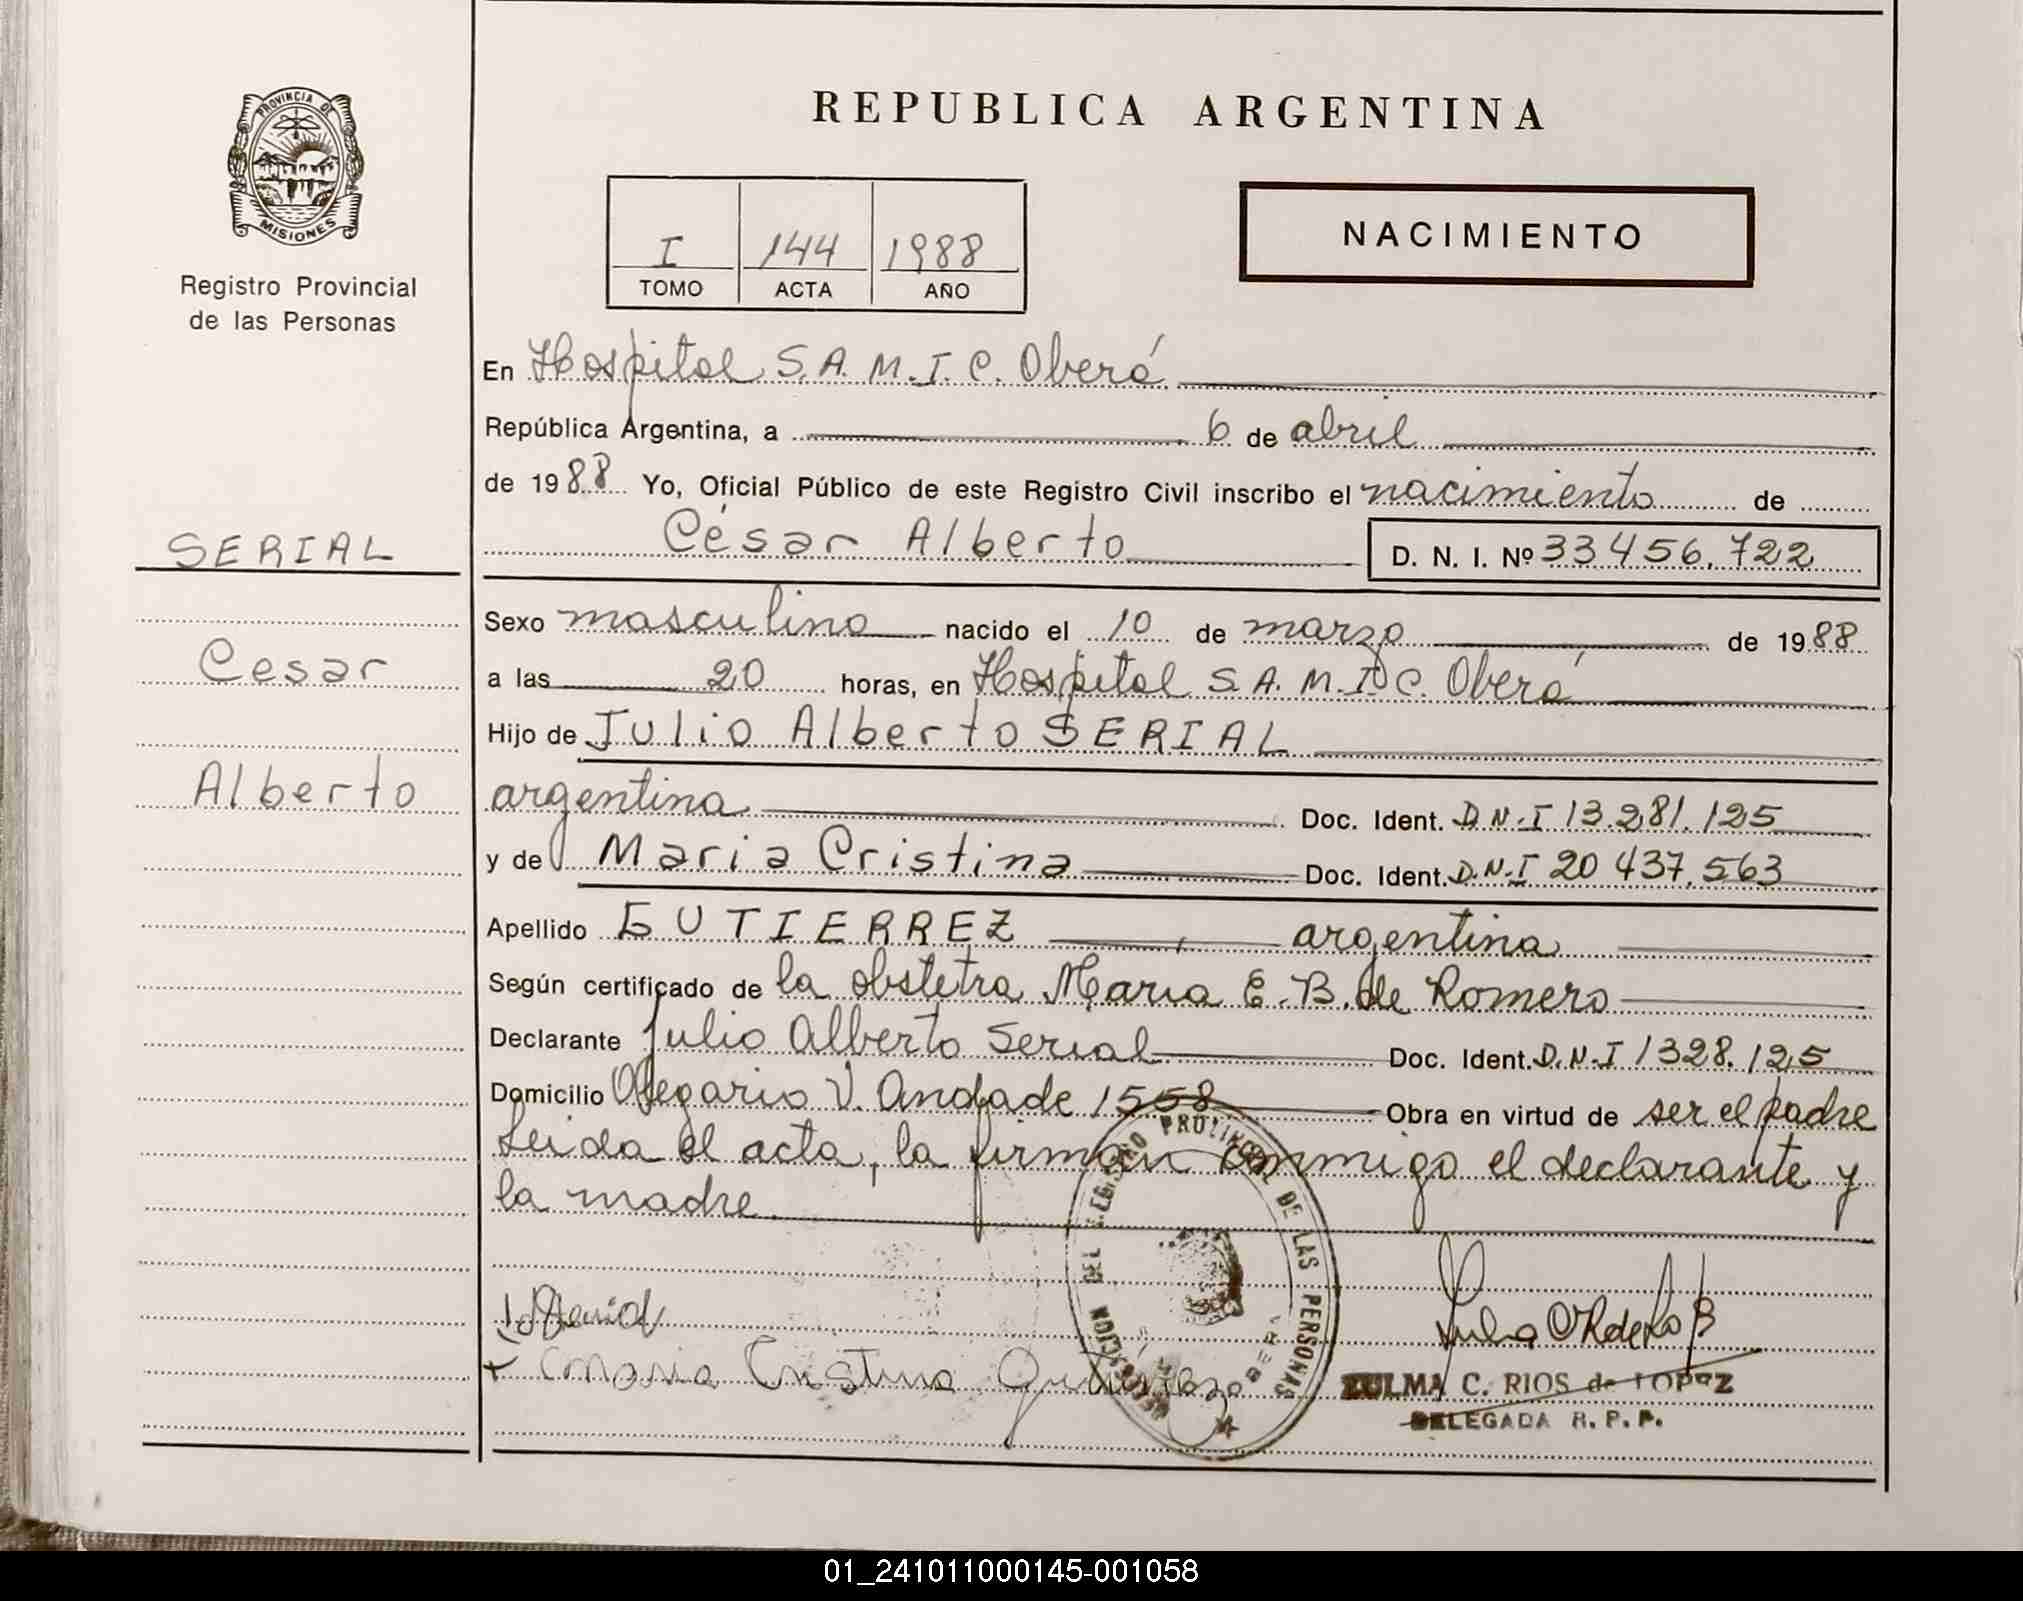 PROVINCIA DE
MISIONES
Registro Provincial
de las Personas
SERIAL
Cesar
Alberto
REPUBLICA ARGENTINA
I 144 1988
TOMO ACTA AÑO
NACIMIENTO
En Hospital S.A.M.I.C. Oberá
República Argentina, a 6 de abril
de 1988 Yo, Oficial Público de este Registro Civil inscribo el nacimiento de
César Alberto D. N. I. Nº 33456.722
Sexo masculino nacido el 10 de marzo de 1988
a las 20 horas, en Hospital S.A.M.I.C. Oberá
Hijo de Julio Alberto SERIAL
argentina Doc. Ident. D.N.I 13.281.125
y de Maria Cristina Doc. Ident. D.N.I 20 437.563
Apellido GUTIERREZ argentina
Según certificado de la obstetra María E. B. de Romero
Declarante Julio Alberto Serial Doc. Ident. D.N.I 1328.125
Domicilio Olegario V. Andrade 1558 Obra en virtud de ser el padre
Leida el acta, la firman conmigo el declarante y
la madre
Maria Cristina
DEL REGISTRO PROVINCIAL DE LAS PERSONAS
OBERA
ZULMA C. RIOS de LOPEZ
DELEGADA R. P. P.
01_241011000145-001058